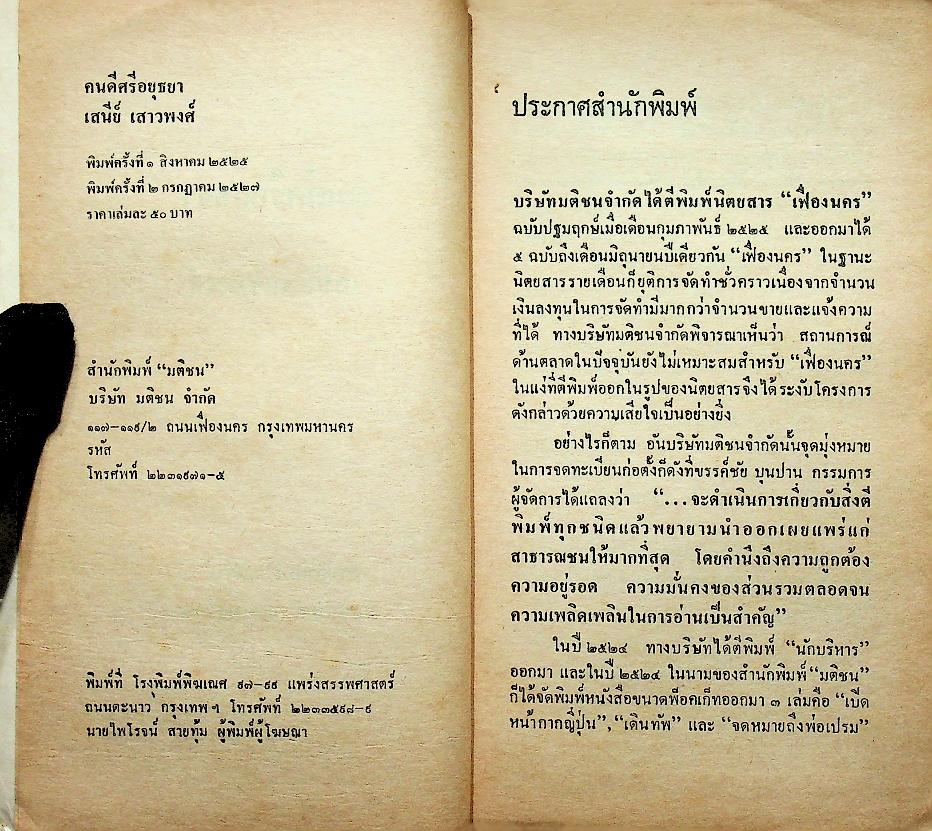 คนดีศรีอยุธยา
เสนีย์ เสาวพงศ์
พิมพ์ครั้งที่ ๑ สิงหาคม ๒๕๒๕
พิมพ์ครั้งที่ ๒ กรกฎาคม ๒๕๒๗
ราคาเล่มละ ๕๐ บาท
สำนักพิมพ์ “มติชน”
บริษัท มติชน จำกัด
๑๑๗-๑๑๙/๒ ถนนเฟื่องนคร กรุงเทพมหานคร
รหัส
โทรศัพท์ ๒๒๓๑๙๗๑-๕
พิมพ์ที่ โรงพิมพ์พิฆเณศ ๙๗-๙๙ แพร่งสรรพศาสตร์
ถนนตะนาว กรุงเทพฯ โทรศัพท์ ๒๒๓๓๕๙๘-๙
นายไพโรจน์ สายทุ้ม ผู้พิมพ์ผู้โฆษณา
ประกาศสำนักพิมพ์
บริษัทมติชนจำกัดได้ตีพิมพ์นิตยสาร “เฟื่องนคร”
ฉบับปฐมฤกษ์เมื่อเดือนกุมภาพันธ์ ๒๕๒๕ และออกมาได้
๕ ฉบับถึงเดือนมิถุนายนปีเดียวกัน “เฟื่องนคร” ในฐานะ
นิตยสารรายเดือนก็ยุติการจัดทำชั่วคราวเนื่องจากจำนวน
เงินลงทุนในการจัดทำมีมากกว่าจำนวนขายและแจ้งความ
ที่ได้ ทางบริษัทมติชนจำกัดพิจารณาเห็นว่า สถานการณ์
ด้านตลาดในปัจจุบันยังไม่เหมาะสมสำหรับ “เฟื่องนคร”
ในแง่ที่ตีพิมพ์ออกในรูปของนิตยสารจึงได้ระงับโครงการ
ดังกล่าวด้วยความเสียใจเป็นอย่างยิ่ง
อย่างไรก็ตาม อันบริษัทมติชนจำกัดนั้นจุดมุ่งหมาย
ในการจดทะเบียนก่อตั้งก็ดังที่ขรรค์ชัย บุนปาน กรรมการ
ผู้จัดการได้แถลงว่า “...จะดำเนินการเกี่ยวกับสิ่งตี
พิมพ์ทุกชนิดแล้วพยายามนำออกเผยแพร่แก่
สาธารณชนให้มากที่สุด โดยคำนึงถึงความถูกต้อง
ความอยู่รอด ความมั่นคงของส่วนรวมตลอดจน
ความเพลิดเพลินในการอ่านเป็นสำคัญ”
ในปี ๒๕๒๔ ทางบริษัทได้ตีพิมพ์ “นักบริหาร”
ออกมา และในปี ๒๕๒๔ ในนามของสำนักพิมพ์ “มติชน”
ก็ได้จัดพิมพ์หนังสือขนาดพ็อคเก็ทออกมา ๓ เล่มคือ “เบิ่ด
หน้ากากญี่ปุ่น”, “เดินทัพ” และ “จดหมายถึงพ่อเปรม”